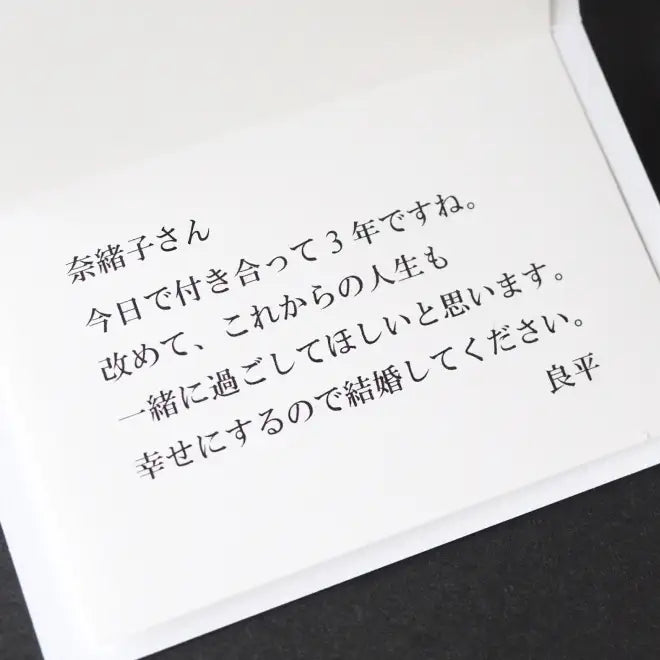 奈緒子さん
今日で付き合って3年ですね。
改めて、これからの人生も
一緒に過ごしてほしいと思います。
幸せにするので結婚してください。
良平